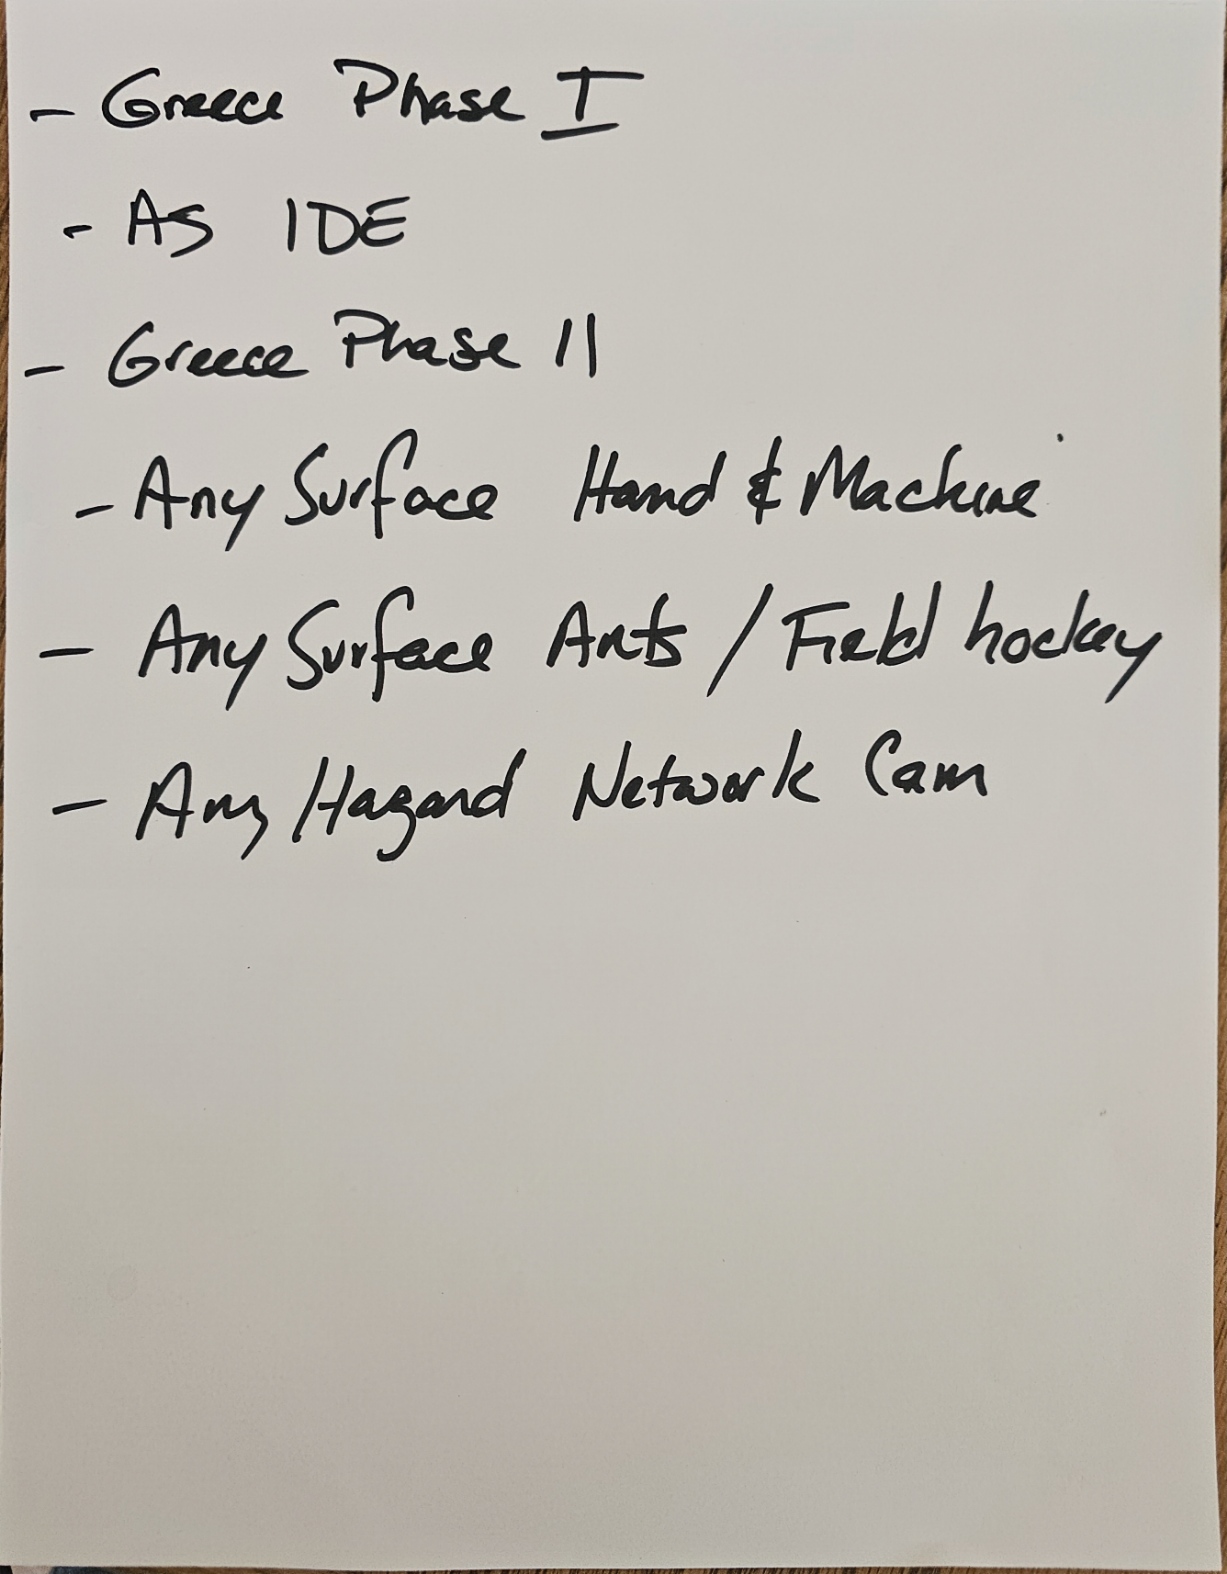 - Greece Phase I
- AS IDE
- Greece Phase II
- Any Surface Hand & Machine
- Any Surface Ants / Field hockey
- Any Hazard Network Cam